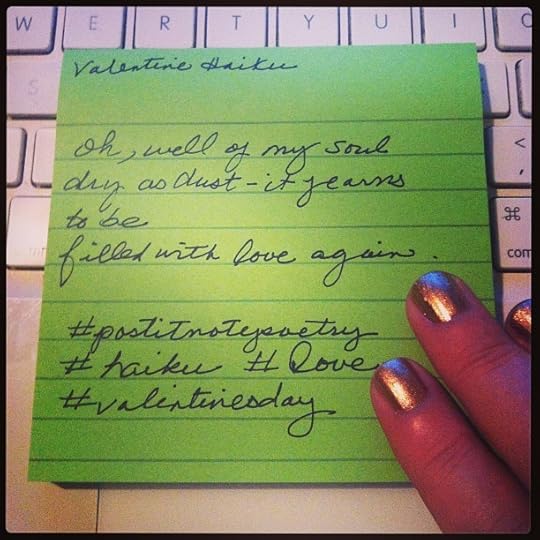 W E R T Y U I O
S
Valentine Haiku
Oh, well of my soul
dry as dust - it yearns
to be
filled with love again.
#postitnotepoetry
# haiku # love
#valentinesday
<
,
⌘
com